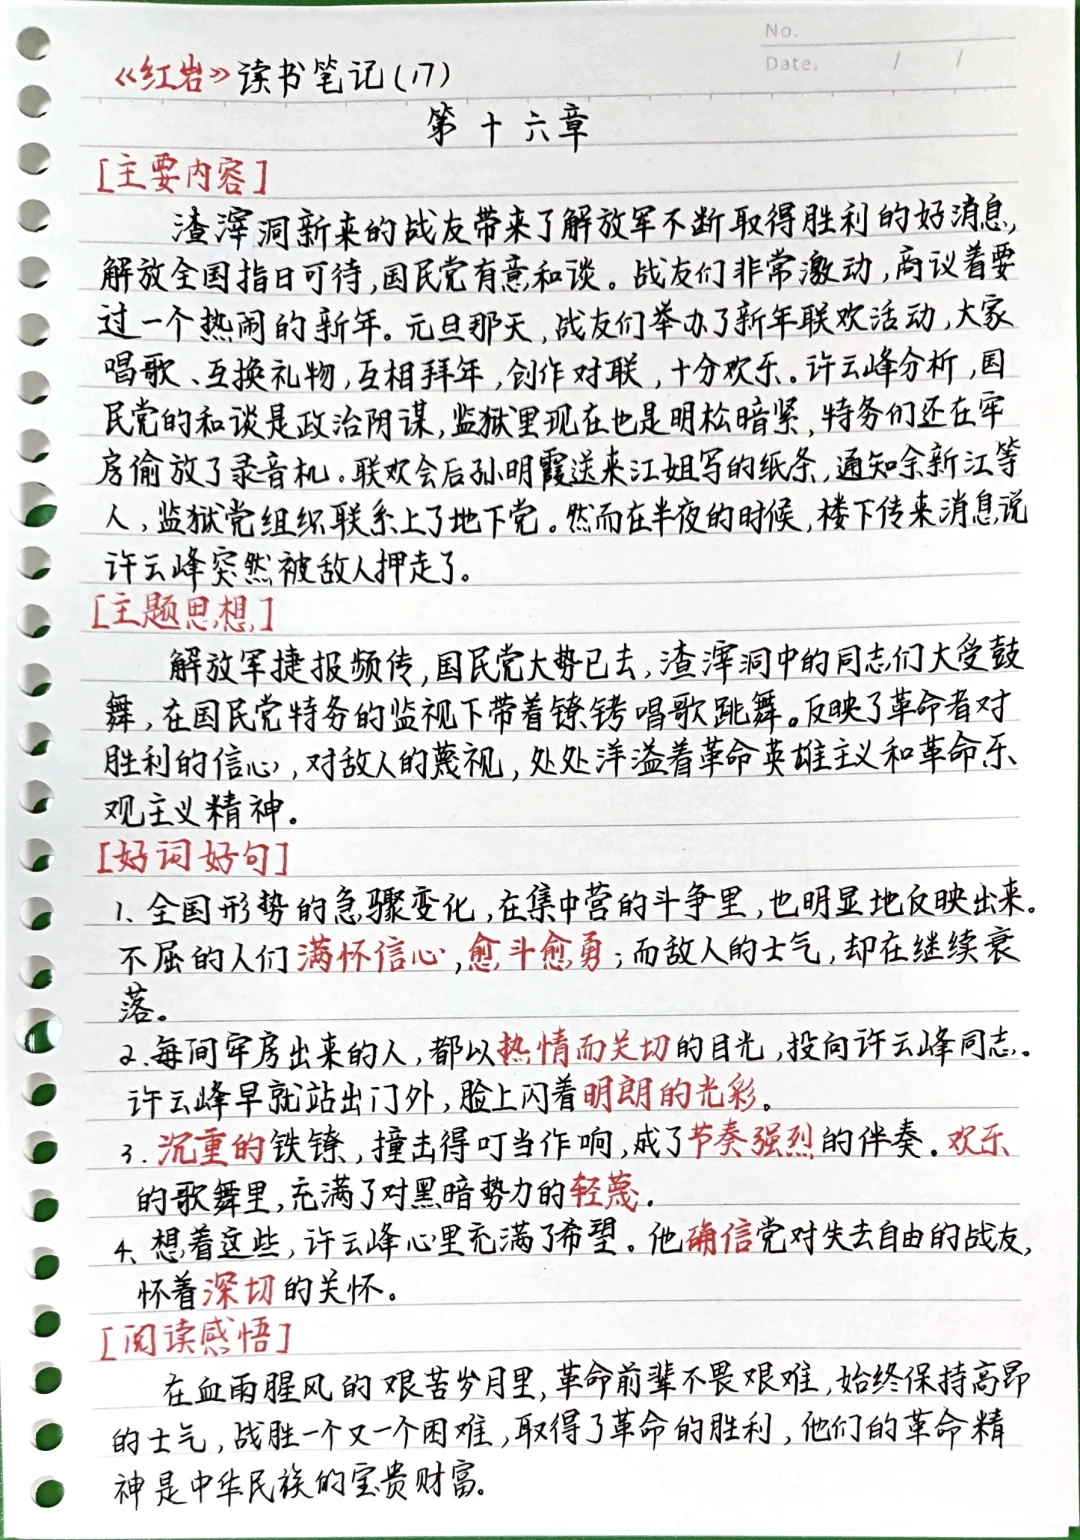 No.
Date. / /
《红岩》读书笔记(17)
第十六章
[主要内容]
渣滓洞新来的战友带来了解放军不断取得胜利的好消息,
解放全国指日可待,国民党有意和谈。战友们非常激动,商议着要
过一个热闹的新年。元旦那天,战友们举办了新年联欢活动,大家
唱歌、互换礼物,互相拜年,创作对联,十分欢乐。许云峰分析,国
民党的和谈是政治阴谋,监狱里现在也是明松暗紧,特务们还在牢
房偷放了录音机。联欢会后孙明霞送来江姐写的纸条,通知余新江等
人,监狱党组织联系上了地下党。然而在半夜的时候,楼下传来消息说
许云峰突然被敌人押走了。
[主题思想]
解放军捷报频传,国民党大势已去,渣滓洞中的同志们大受鼓
舞,在国民党特务的监视下带着镣铐唱歌跳舞。反映了革命者对
胜利的信心,对敌人的蔑视,处处洋溢着革命英雄主义和革命乐
观主义精神。
[好词好句]
1、全国形势的急骤变化,在集中营的斗争里,也明显地反映出来。
不屈的人们满怀信心,愈斗愈勇;而敌人的士气,却在继续衰
落。
2、每间牢房出来的人,都以热情而关切的目光,投向许云峰同志。
许云峰早就站出门外,脸上闪着明朗的光彩。
3.沉重的铁镣,撞击得叮当作响,成了节奏强烈的伴奏。欢乐
的歌舞里,充满了对黑暗势力的轻蔑。
4、想着这些,许云峰心里充满了希望。他确信党对失去自由的战友,
怀着深切的关怀。
[阅读感悟]
在血雨腥风的艰苦岁月里,革命前辈不畏艰难,始终保持高昂
的士气,战胜一个又一个困难,取得了革命的胜利,他们的革命精
神是中华民族的宝贵财富。